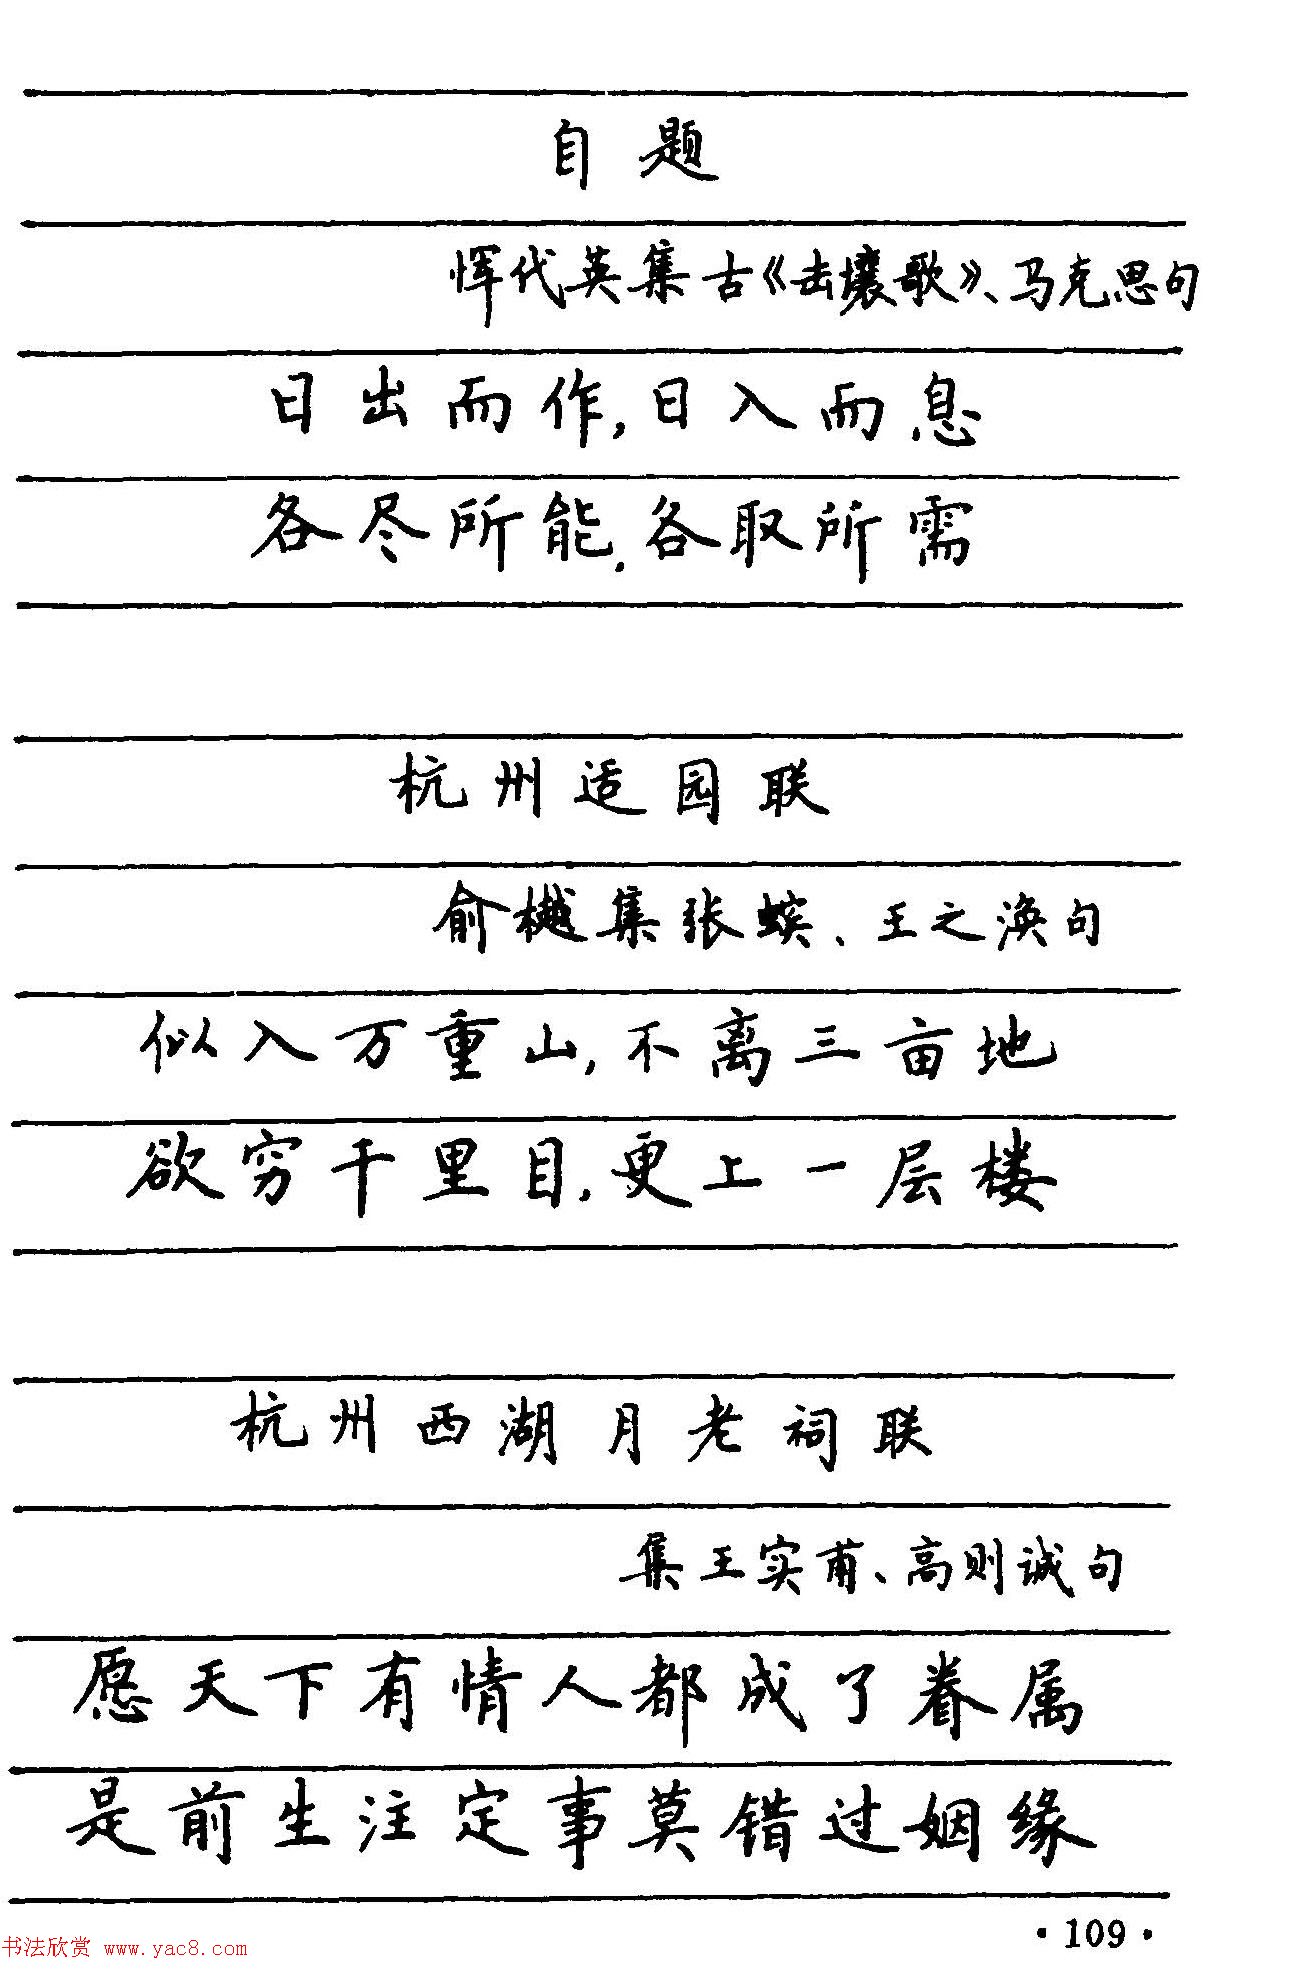 自题
恽代英集古《击壤歌》、马克思句
日出而作,日入而息
各尽所能,各取所需
杭州适园联
俞樾集张蠙、王之涣句
似入万重山,不离三亩地
欲穷千里目,更上一层楼
杭州西湖月老祠联
集王实甫、高则诚句
愿天下有情人都成了眷属
是前生注定事莫错过姻缘
·109·
书法欣赏 www.yac8.com